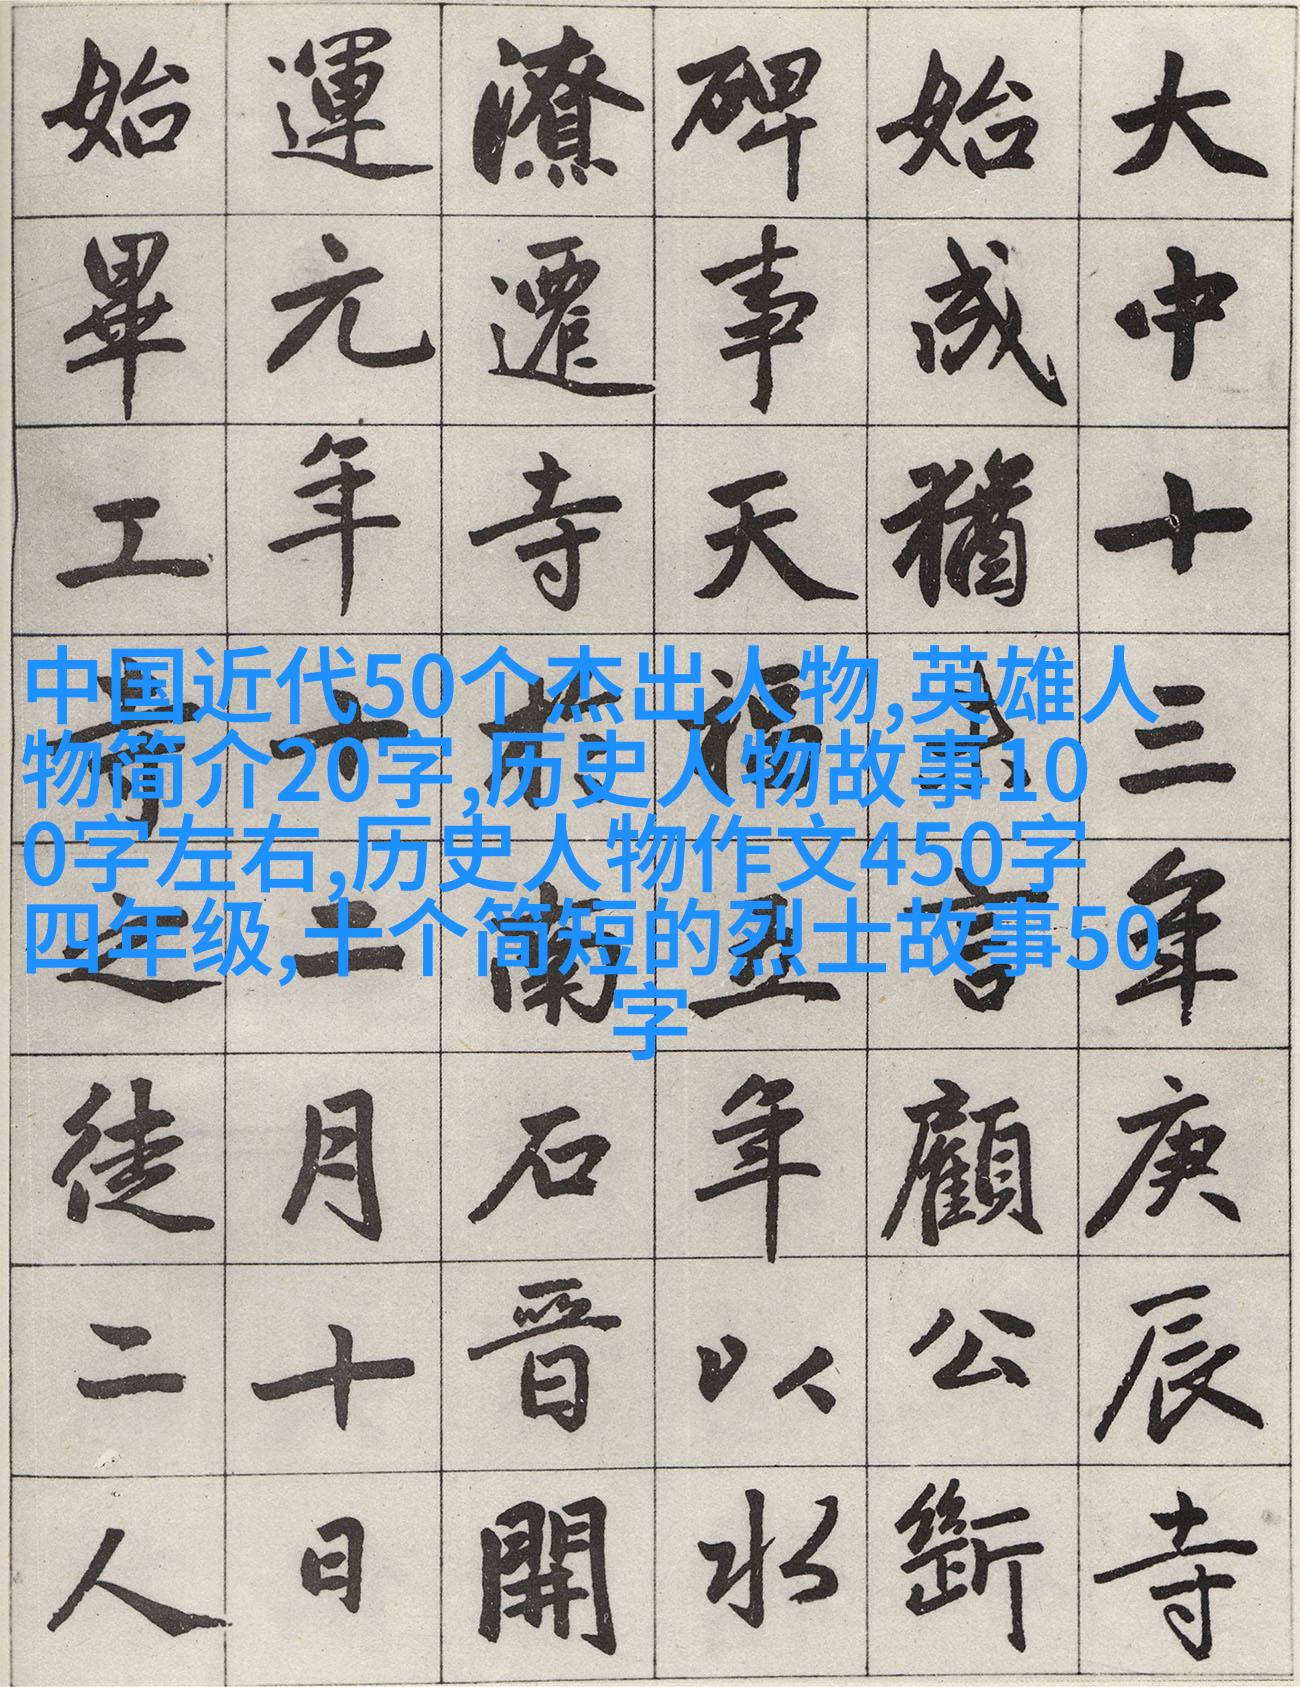 大中十三年庚辰寺
始成猶言顧公斷
碑事天福五年以水
潦遷寺於南石晉開
運元年十二月十日
始畢工之徒二人
中国近代50个杰出人物,英雄人
物简介20字,历史人物故事10
0字左右,历史人物作文450字
四年级,十个简短的烈士故事50
字